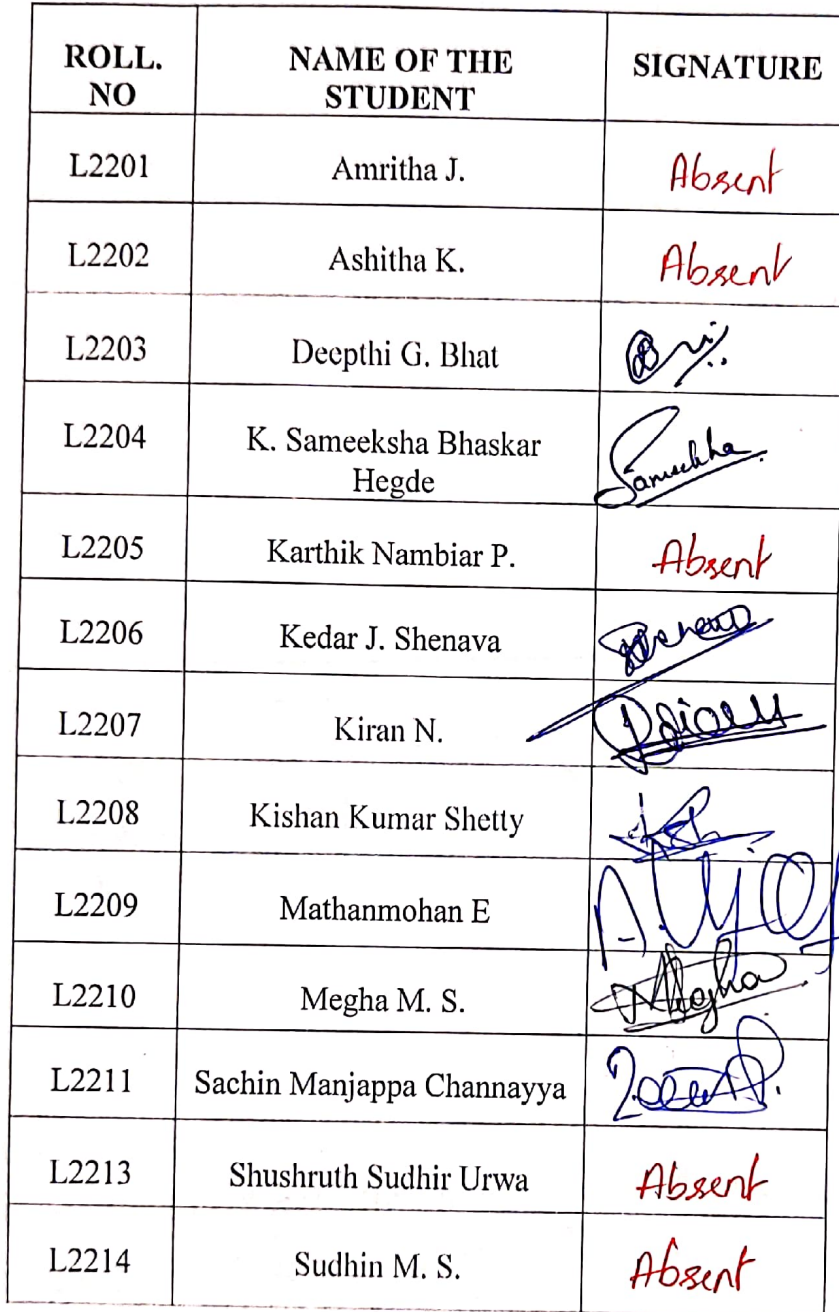 ROLL. NO NAME OF THE STUDENT SIGNATURE
L2201 Amritha J. Absent
L2202 Ashitha K. Absent
L2203 Deepthi G. Bhat
L2204 K. Sameeksha Bhaskar Hegde Sameeksha
L2205 Karthik Nambiar P. Absent
L2206 Kedar J. Shenava
L2207 Kiran N.
L2208 Kishan Kumar Shetty
L2209 Mathanmohan E
L2210 Megha M. S. Megha
L2211 Sachin Manjappa Channayya
L2213 Shushruth Sudhir Urwa Absent
L2214 Sudhin M. S. Absent